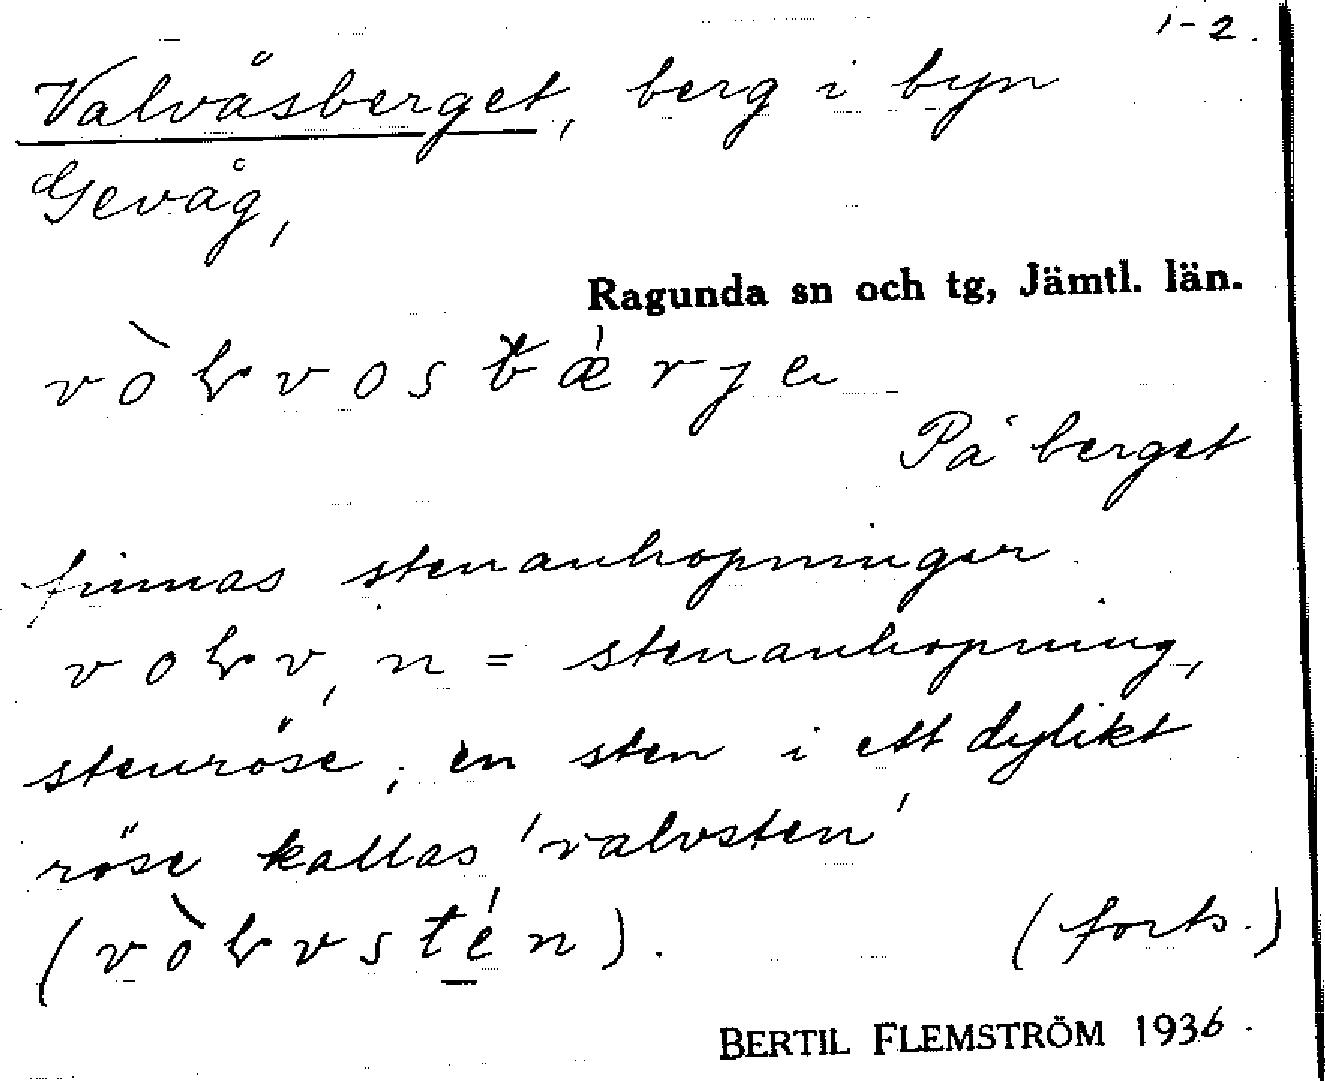 1-2.
Valvåsberget, berg i byn
Gevåg,
Ragunda sn och tg, Jämtl. län.
På berget
finnas stenanhopningar
n = stenanhopning,
stenröse; en sten i ett dylikt
röse kallas 'valvsten'
(forts.)
BERTIL FLEMSTRÖM 1936.